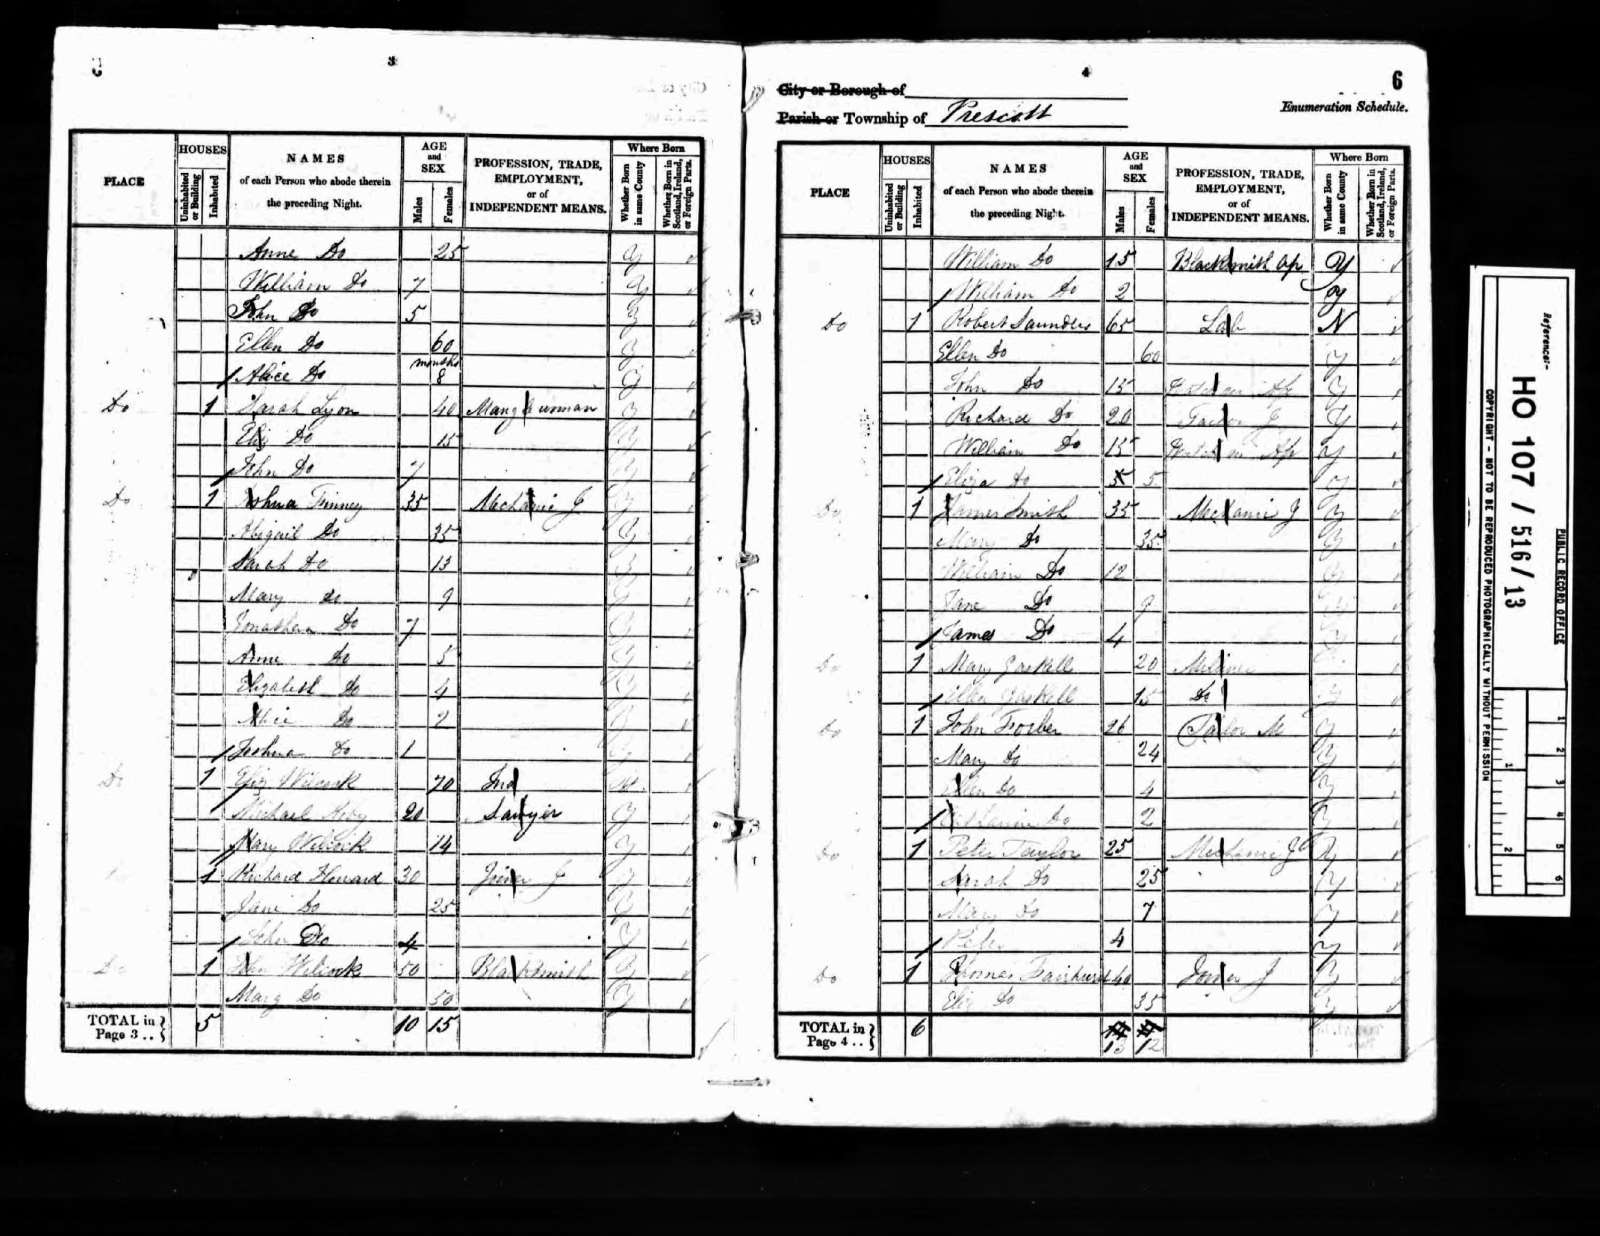 3
PLACE
HOUSES
Uninhabited or Building
Inhabited
NAMES
of each Person who abode therein
the preceding Night.
AGE
and
SEX
Males
Females
PROFESSION, TRADE,
EMPLOYMENT,
or of
INDEPENDENT MEANS.
Where Born
Whether Born in same County
Whether Born in Scotland, Ireland, or Foreign Parts.
Anne Do 25 Y
William Do 7 Y
John Do 5 Y
Ellen Do 60 Y
months
Alice Do 8 Y
Do 1 Sarah Lyon 40 Y
Eliz Do 15 Y
John Do 7 Y
Do 1 Joshua Finney 35 Mechanic J Y
Abigail Do 35 Y
Sarah Do 13 Y
Mary Do 9 Y
Jonathan Do 7 Y
Anne Do 5 Y
Elizabeth Do 4 Y
Alice Do 2 Y
Joshua Do 1 Y
Do 1 Eliz Wilcock 70 Ind
Michael 20 Sawyer Y
Mary Wilcock 14 Y
1 Richard Howard 30 Joiner J Y
Jane Do 25 Y
John Do 4 Y
Do 1 John Wilcock 50 Blacksmith Y
Mary Do 50 Y
TOTAL in
Page 3 .. 5 10 15
4
6
City or Borough of
Enumeration Schedule.
Parish or Township of Prescott
PLACE
HOUSES
Uninhabited or Building
Inhabited
NAMES
of each Person who abode therein
the preceding Night.
AGE
and
SEX
Males
Females
PROFESSION, TRADE,
EMPLOYMENT,
or of
INDEPENDENT MEANS.
Where Born
Whether Born in same County
Whether Born in Scotland, Ireland, or Foreign Parts.
William Do 15 Blacksmith Ap Y
William Do 2 Y
Do 1 Robert Saunders 65 Lab N
Ellen Do 60 Y
John Do 15 Ap Y
Richard Do 20 J Y
William Do 15 Ap Y
Eliza Do 5 5 Y
Do 1 James Smith 35 Mechanic J Y
Mary Do 35 Y
William Do 12 Y
Jane Do 9 Y
James Do 4 Y
Do 1 Mary Gaskell 20
Ellen Gaskell 15 Do Y
Do 1 John Forber 26 Tailor M Y
Mary Do 24 Y
Ellen Do 4 Y
Catherine Do 2 Y
Do 1 Peter Taylor 25 Mechanic J Y
Sarah Do 25 Y
Mary Do 7 Y
Peter 4 Y
Do 1 Thomas Fairhurst 40 Joiner J Y
Eliz Do 35 Y
TOTAL in
Page 4 .. 6 13 12
Reference:-
HO 107 / 516 / 13
PUBLIC RECORD OFFICE
COPYRIGHT - NOT TO BE REPRODUCED PHOTOGRAPHICALLY WITHOUT PERMISSION
1 2 3 4 5 6
1 2